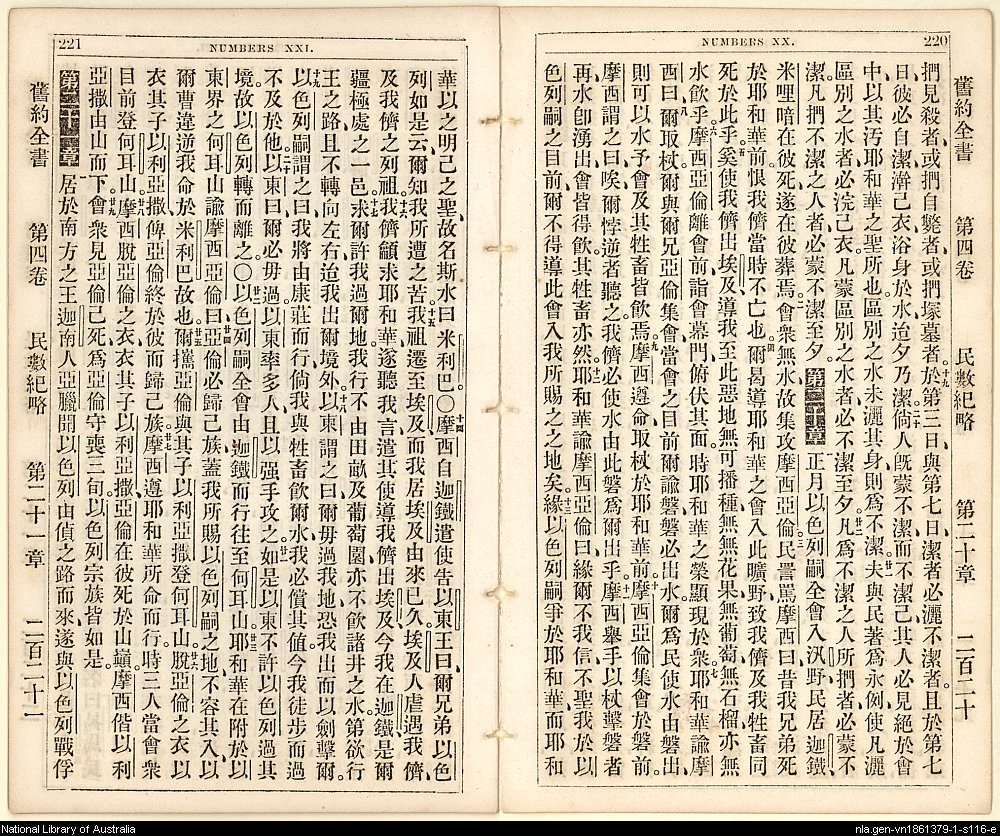 NUMBERS XX.
220
舊約全書 第四卷 民數紀略 第二十章 二百二十
捫見殺者、或捫自斃者、或捫塚墓者。於第三日、與第七日、潔者必灑不潔者。且於第七
日彼必自潔、澣己衣浴身於水、迨夕乃潔。倘人既蒙不潔、而不潔己、其人必見絕於會
中、以其汚耶和華之聖所也、區別之水未灑其身、則爲不潔。夫與民著爲永例、使凡灑
區別之水者、必浣己衣、凡蒙區別之水者、必不潔至夕。凡爲不潔之人所捫者、必蒙不
潔。凡捫不潔之人者、必蒙不潔至夕。第二十章 正月以色列嗣全會入汎野、民居迦鐵
米哩暗在彼死、遂在彼葬焉。會衆無水、故集攻摩西亞倫。民詈罵摩西曰、昔我兄弟死
於耶和華前、恨我儕當時不亡也。爾曷導耶和華之會入此曠野、致我儕及我牲畜同
死於此乎。奚使我儕出埃及、導我至此惡地、無可播種、無無花果、無葡萄、無石榴、亦無
水飲乎。摩西亞倫離會前、詣會幕門、俯伏其面、時耶和華之榮顯現於衆。耶和華諭摩
西曰、爾取杖、爾與爾兄亞倫集會、當會之目前、爾諭磐、磐必出水、爾爲民使水由磐出、
則可以水予會及其牲畜皆飮焉。摩西遵命取杖於耶和華前。摩西亞倫集會於磐前。
摩西謂之曰、唉、爾悖逆者聽之、我儕必使水由此磐爲爾出乎。摩西舉手以杖擊磐者
再、水卽湧出、會皆得飮、其牲畜亦然。耶和華諭摩西亞倫曰、緣爾不我信、不聖我於以
色列嗣之目前、爾不得導此會入我所賜之之地矣。緣以色列嗣爭於耶和華、而耶和
NUMBERS XXI.
221
華以之明己之聖、故名斯水曰米利巴。〇摩西自迦鐵遣使、告以東王曰、爾兄弟以色
列如是云、爾知我所遭之苦。我祖遷至埃及、而我居埃及由來已久、埃及人虐遇我儕、
及我儕之列祖。我儕籲求耶和華、遂聽我言、遣其使導我儕出埃及、今我在迦鐵、是爾
疆極處之一邑。求爾許我過爾地、我行不由田畝及葡萄園、亦不飮諸井之水、第欲行
王之路、且不轉向左右、迨我出爾境外。以東謂之曰、爾毋過我地、恐我出而以劍擊爾。
以色列嗣謂之曰、我將由康莊而行、倘我與牲畜飮爾水、我必償其値、今我徒步而過、
不及於他。以東曰、爾必毋過、以東率多人、且以强手攻之。如是以東不許以色列過其
境、故以色列轉而離之。〇以色列嗣全會由迦鐵而行、往至何耳山。耶和華在附於以
東界之何耳山、諭摩西亞倫曰、亞倫必歸己族、蓋我所賜以色列嗣之地、不容其入、以
爾曹違逆我命於米利巴故也。爾攜亞倫與其子以利亞撒、登何耳山。脫亞倫之衣、以
衣其子以利亞撒、俾亞倫終於彼、而歸己族。摩西遵耶和華所命而行、時三人當會衆
目前、登何耳山。摩西脫亞倫之衣、衣其子以利亞撒、亞倫在彼死於山巔、摩西偕以利
亞撒由山而下。會衆見亞倫已死、爲亞倫守喪三旬、以色列宗族皆如是。
第二十一章 居於南方之王、迦南人亞臘、聞以色列由偵之路而來、遂與以色列戰、俘
舊約全書 第四卷 民數紀略 第二十一章 二百二十一
National Library of Australia
nla.gen-vn1861379-1-s116-e